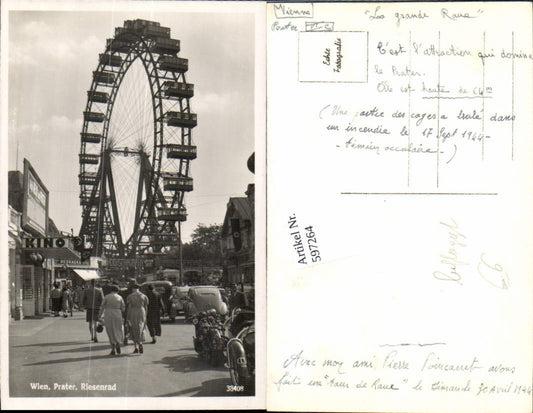 KINO
Wien, Prater, Riesenrad
38408
Vienne
"La grande Roue"
Echte
Fotografie
C'est l'attraction qui domine
le Prater.
Elle est haute de 64m
(Une partie des cages a brulé dans
un incendie le 17 Sept 1944 -
- témoin occulaire - )
Artikel Nr.
597264
Avec mon ami Pierre avons
fait un "Tour de Roue" le Dimanche 30 Avril 1944